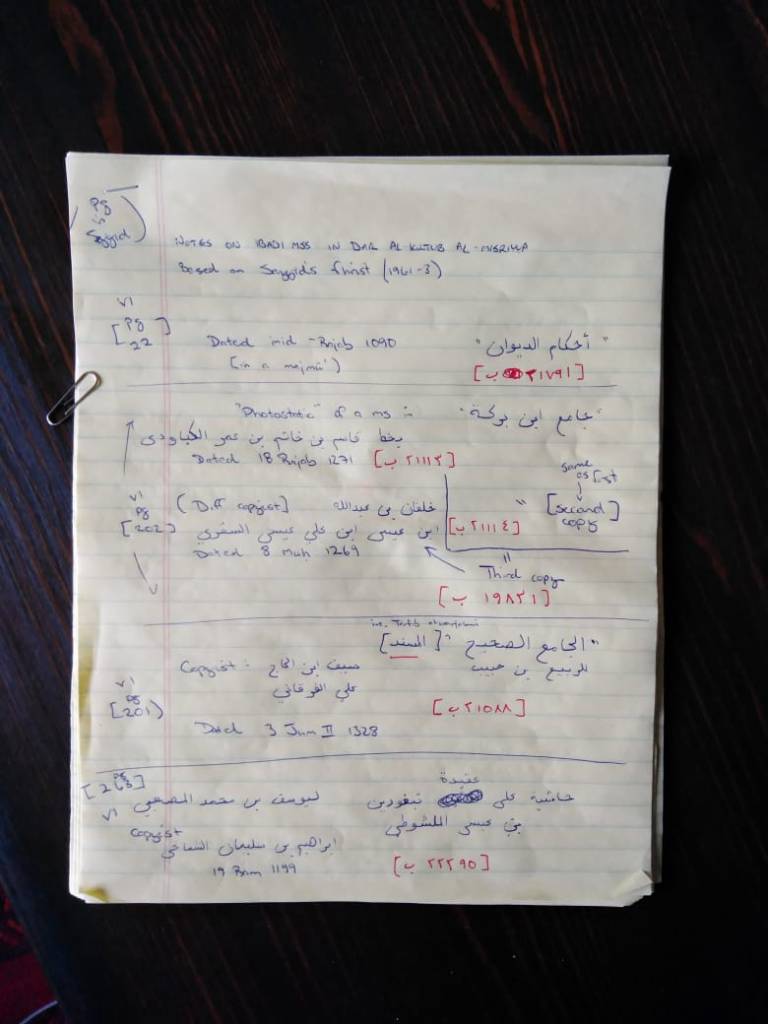 Pg in Sayyid
NOTES ON IBADI MSS IN DAR AL-KUTUB AL-MISRIYYA
Based on Sayyid's fihrist (1961-3)
v1
[Pg 22]
Dated mid-Rajab 1090
"أحكام الديوان"
(in a majmū')
[٢١٧٩١ ب]
"Photostatic" of a ms in
"جامع ابن بركة"
بخط قاسم بن خاتم بن عمر الكباودى
Dated 18 Rajab 1271 [٢١١١٣ ب]
same as first
v1
pg
[202]
(Diff copyist)
خلفان بن عبدالله
"
[second copy]
ابن عيسى ابن علي عيسى السفري
[٢١١١٤ ب]
Dated 8 Muh 1269
Third copy
[١٩٨٣١ ب]
"الجامع الصحيح" [المسند]
للربيع بن حبيب
Copyist: سيف ابن الحاج
علي الفرقاني
v1
pg
[201]
[٢١٥٨٨ ب]
Dated 3 Jum II 1328
[pg 263]
v1
عقيدة
حاشية على تبغورين
بن عيسى الملشوطي
ليوسف بن محمد المصعبي
Copyist
ابراهيم بن سليمان الشماخي
19 Ram 1199
[٢٢٢٩٥ ب]